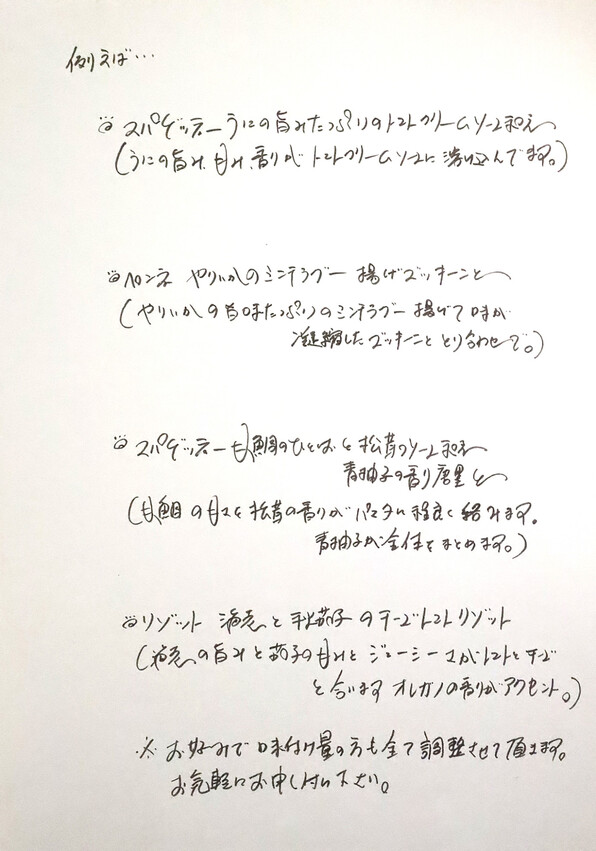 例えば…
スパゲッティー うにの旨みたっぷりのトマトクリームソース和え
(うにの旨み、甘み、香りが トマトクリームソースに 溶け込んでます。)
ペンネ やりいかのミンチラグー 揚げズッキーニと
(やりいかの旨味たっぷりのミンチラグー 揚げて味が
凝縮したズッキーニと とり合わせて。)
スパゲッティー 甘鯛のひとばしと松茸のソース和え
青柚子の香り 唐墨と
(甘鯛の甘さと松茸の香りがパスタに程良く絡みます。
青柚子が全体をまとめます。)
リゾット と 秋茄子のチーズトマトリゾット
(の旨みと茄子の甘みとジューシーさがトマトとチーズ
と合います オレガノの香りがアクセント。)
※ お好みで味付け量の方も全て調整させて頂きます。
お気軽にお申し付け下さい。